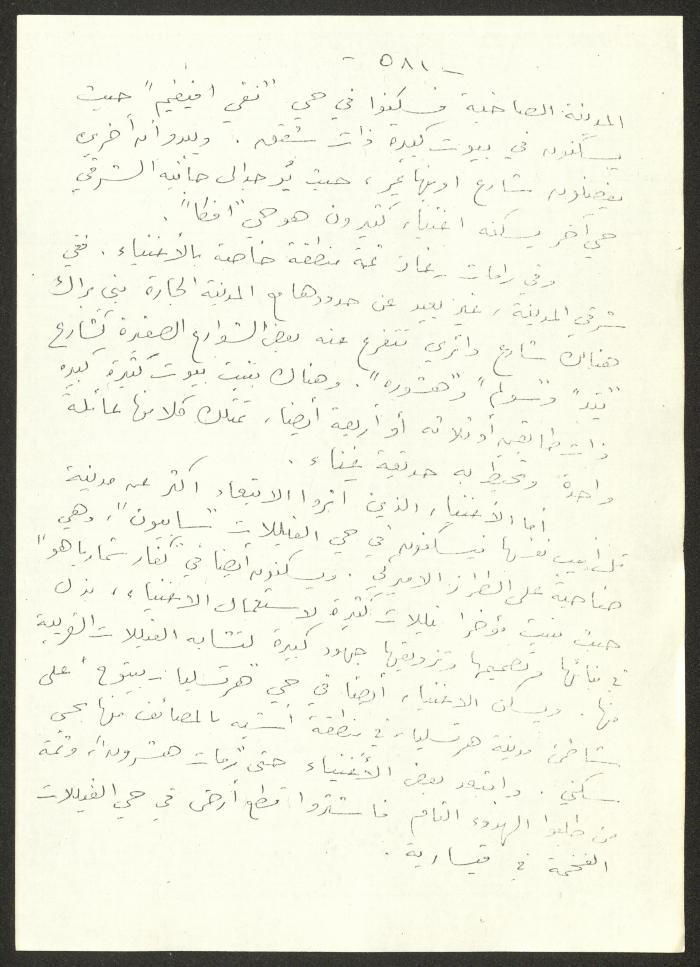 - ٥٨١ -
المدينة الصاخبة فسكنوا في حي "نفي افيفيم" حيث
يسكنون في بيوت كبيرة ذات شقق . ويبدو أن آخرين
يفضلون شارع اوبنهايمر ، حيث يُوجد الى جانبه الشرقي
حي آخر يسكنه اغنياء كثيرون هو حي "افكا" .
وفي رامات - غان ثمة منطقة خاصة بالأغنياء . ففي
شرقي المدينة ، غير بعيد عن حدودها مع المدينة الجارة بني براك
هناك شارع دائري تتفرع عنه بعض الشوارع الصغيرة كشارع
و "سولم" و "هشوره" . وهناك بنيت بيوت كثيرة كبيرة
ذات طابقين أو ثلاثة أو أربعة أيضا ، تمتلك كلا منها عائلة
واحدة وتحيط به حديقة غناء .
أما الأغنياء الذين آثروا الابتعاد اكثر عن مدينة
تل أبيب نفسها فيسكنون في حي الفيللات "سابيون" ، وهي
ضاحية على الطراز الاميركي . ويسكنون أيضا في "كفار شمارياهو"
حيث بنيت مؤخرا فيللات كثيرة لاستعمال الاغنياء ، بذل
في بنائها وتصميمها وتزويقها جهود كبيرة لتشابه الفيللات القريبة
منها . ويسكن الاغنياء أيضا في حي "هرتسليا - بيتوح" على
شاطئ مدينة هرتسليا ، في منطقة أشبه بالمصائف منها بحي
سكني . وابتعد بعض الأغنياء حتى "رمات هشرون" ، وثمة
من طلبوا الهدوء التام فاشتروا قطع أرض في حي الفيللات
الفخمة في قيسارية .